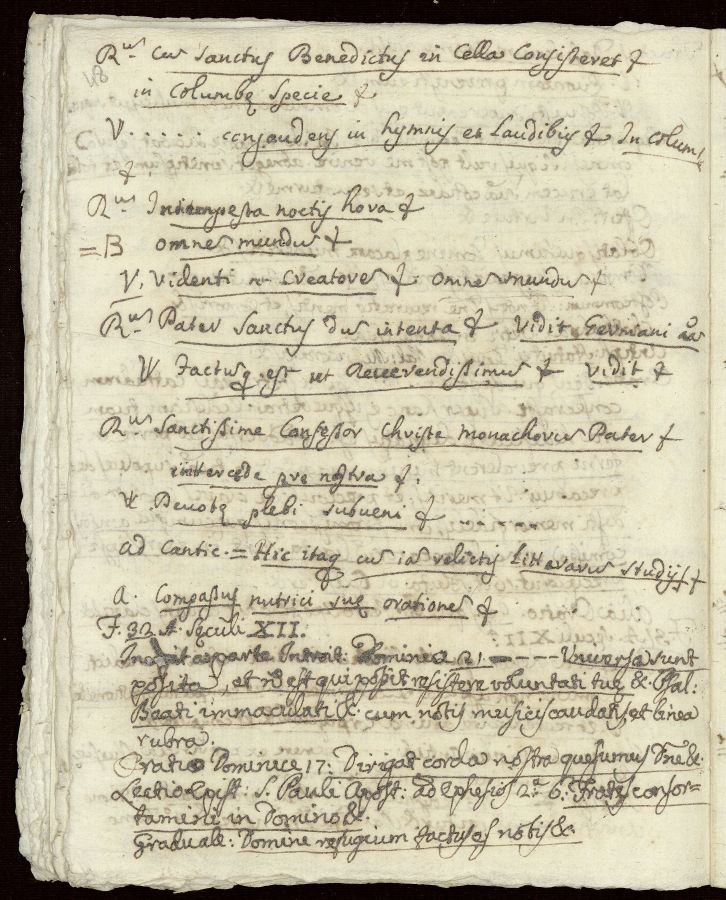 Rus cus Sanctus Benedictus in Cella Consisteret &
in Columbę specie &
V. . . . . . congaudens in hymnis et Laudibus & In Colum
&
Rus Intempesta noctis hora &
= B omnes mundus &
V. Videnti Creatorem & omnes mundus &
Rus Pater Sanctus dus intenta & Vidit Germani
V Factusq est ut Reverendissimus & vidit &
Rus Sanctissime Confessor Christe monachorus Pater &
intercede pro nostra &.
V. Devotę plebi subveni &
ad Cantic. = Hic itaq cus ias relictis Litterarus studijs &
a. Compassus nutrici suę orationes &
F. 32 A. Sęculi XII.
a parte Introit: Dominica 21. - - - - Universa sunt
posita, et nō est qui possit resistere voluntati tuę &. Psal:
Beati immaculati &. cum notis musicis caudatis, et linea
rubra.
Oratio Dominicę 17: Dirigat corda nostra quesumus Dne &.
Lectio Epist: S. Pauli Apost: ad Ephesios 2.a 6. Fratres confor=
tamini in Domino &.
Graduale: Domine refugium factus es nobis &.